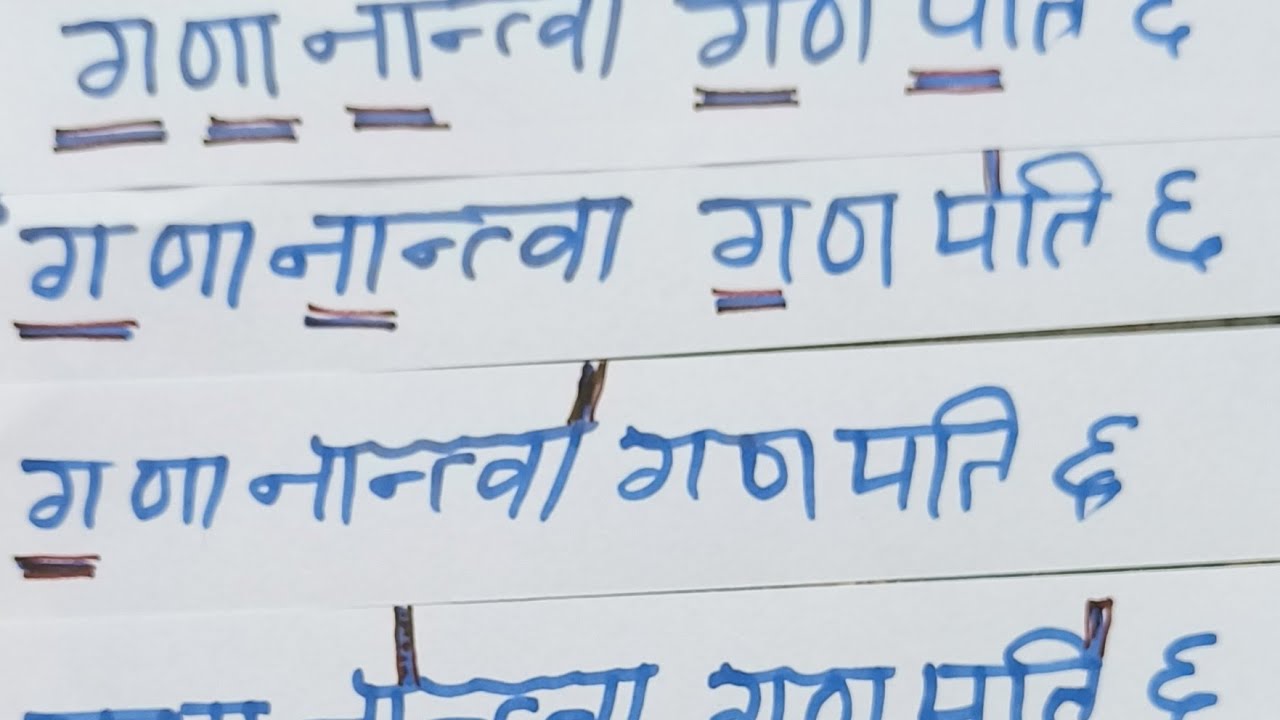 गणानान्त्वा गणपति ६
गणानान्त्वा गणपति ६
गणानान्त्वा गणपति ६
गणानान्त्वा गणपति ६